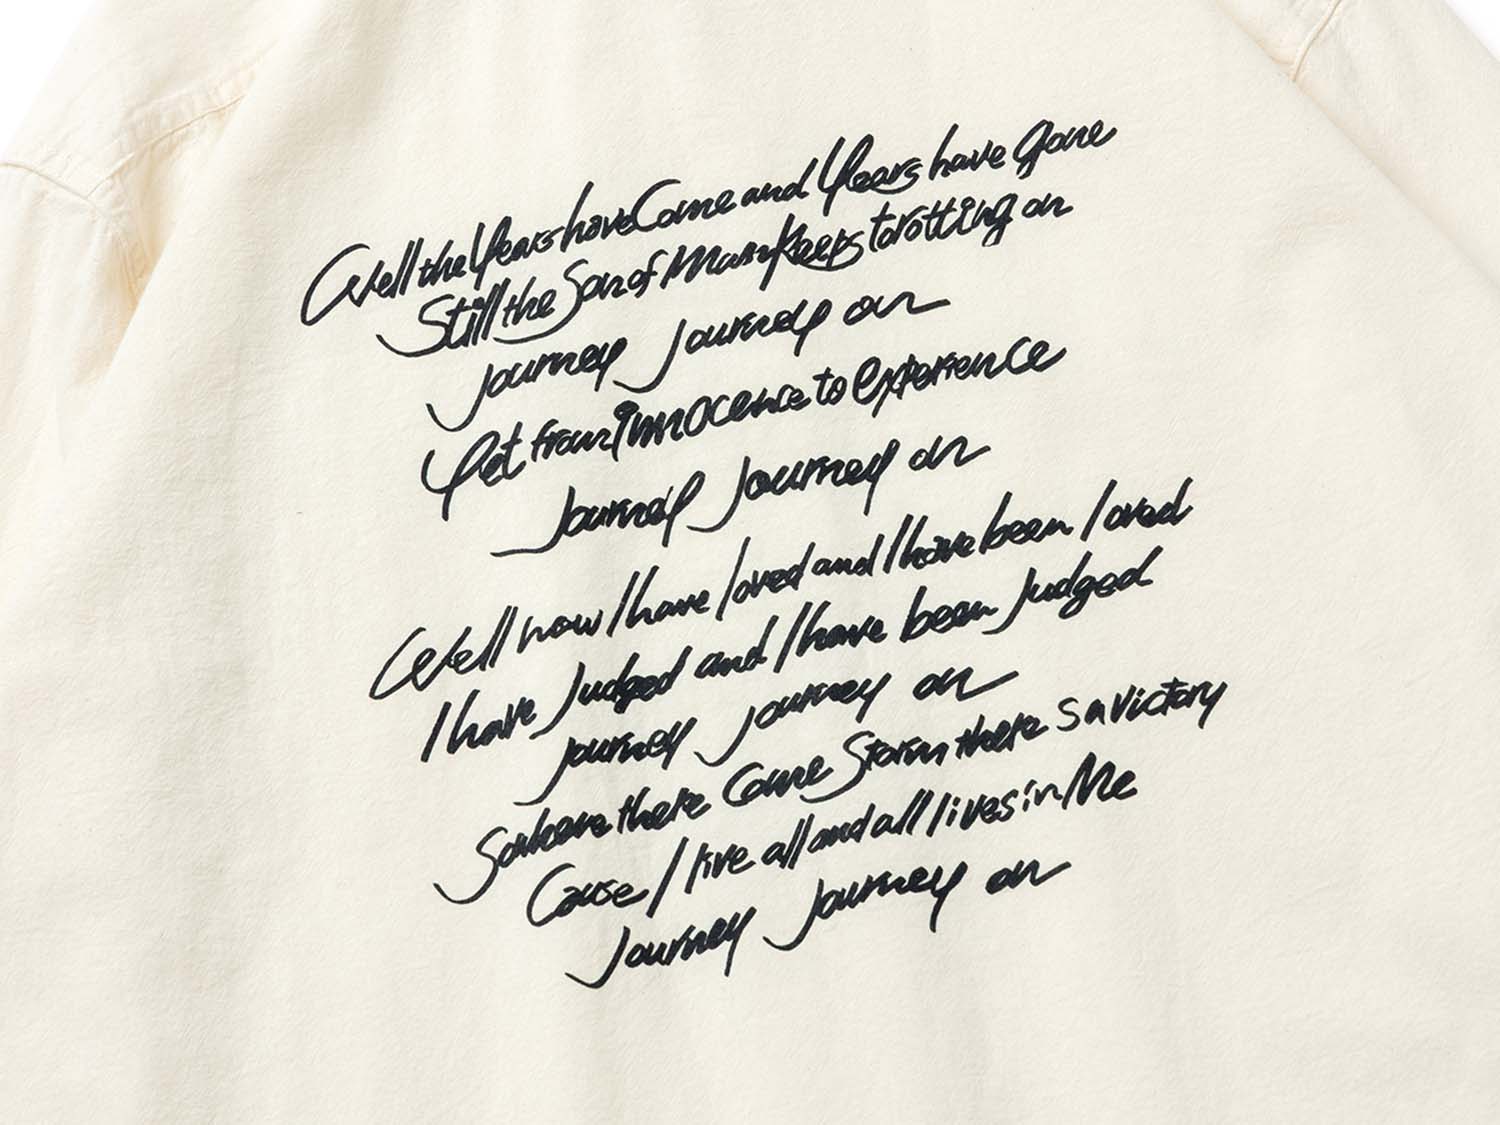 Well the Years have Come and Years have Gone
Still the Son of Man Keeps torotting on
Journey Journey on
Yet from innocence to experience
Journey Journey on
Well now I have loved and I have been loved
I have Judged and I have been Judged
Journey Journey on
So where there Come Storm there s a victory
Cause I live all and all lives in Me
Journey Journey on